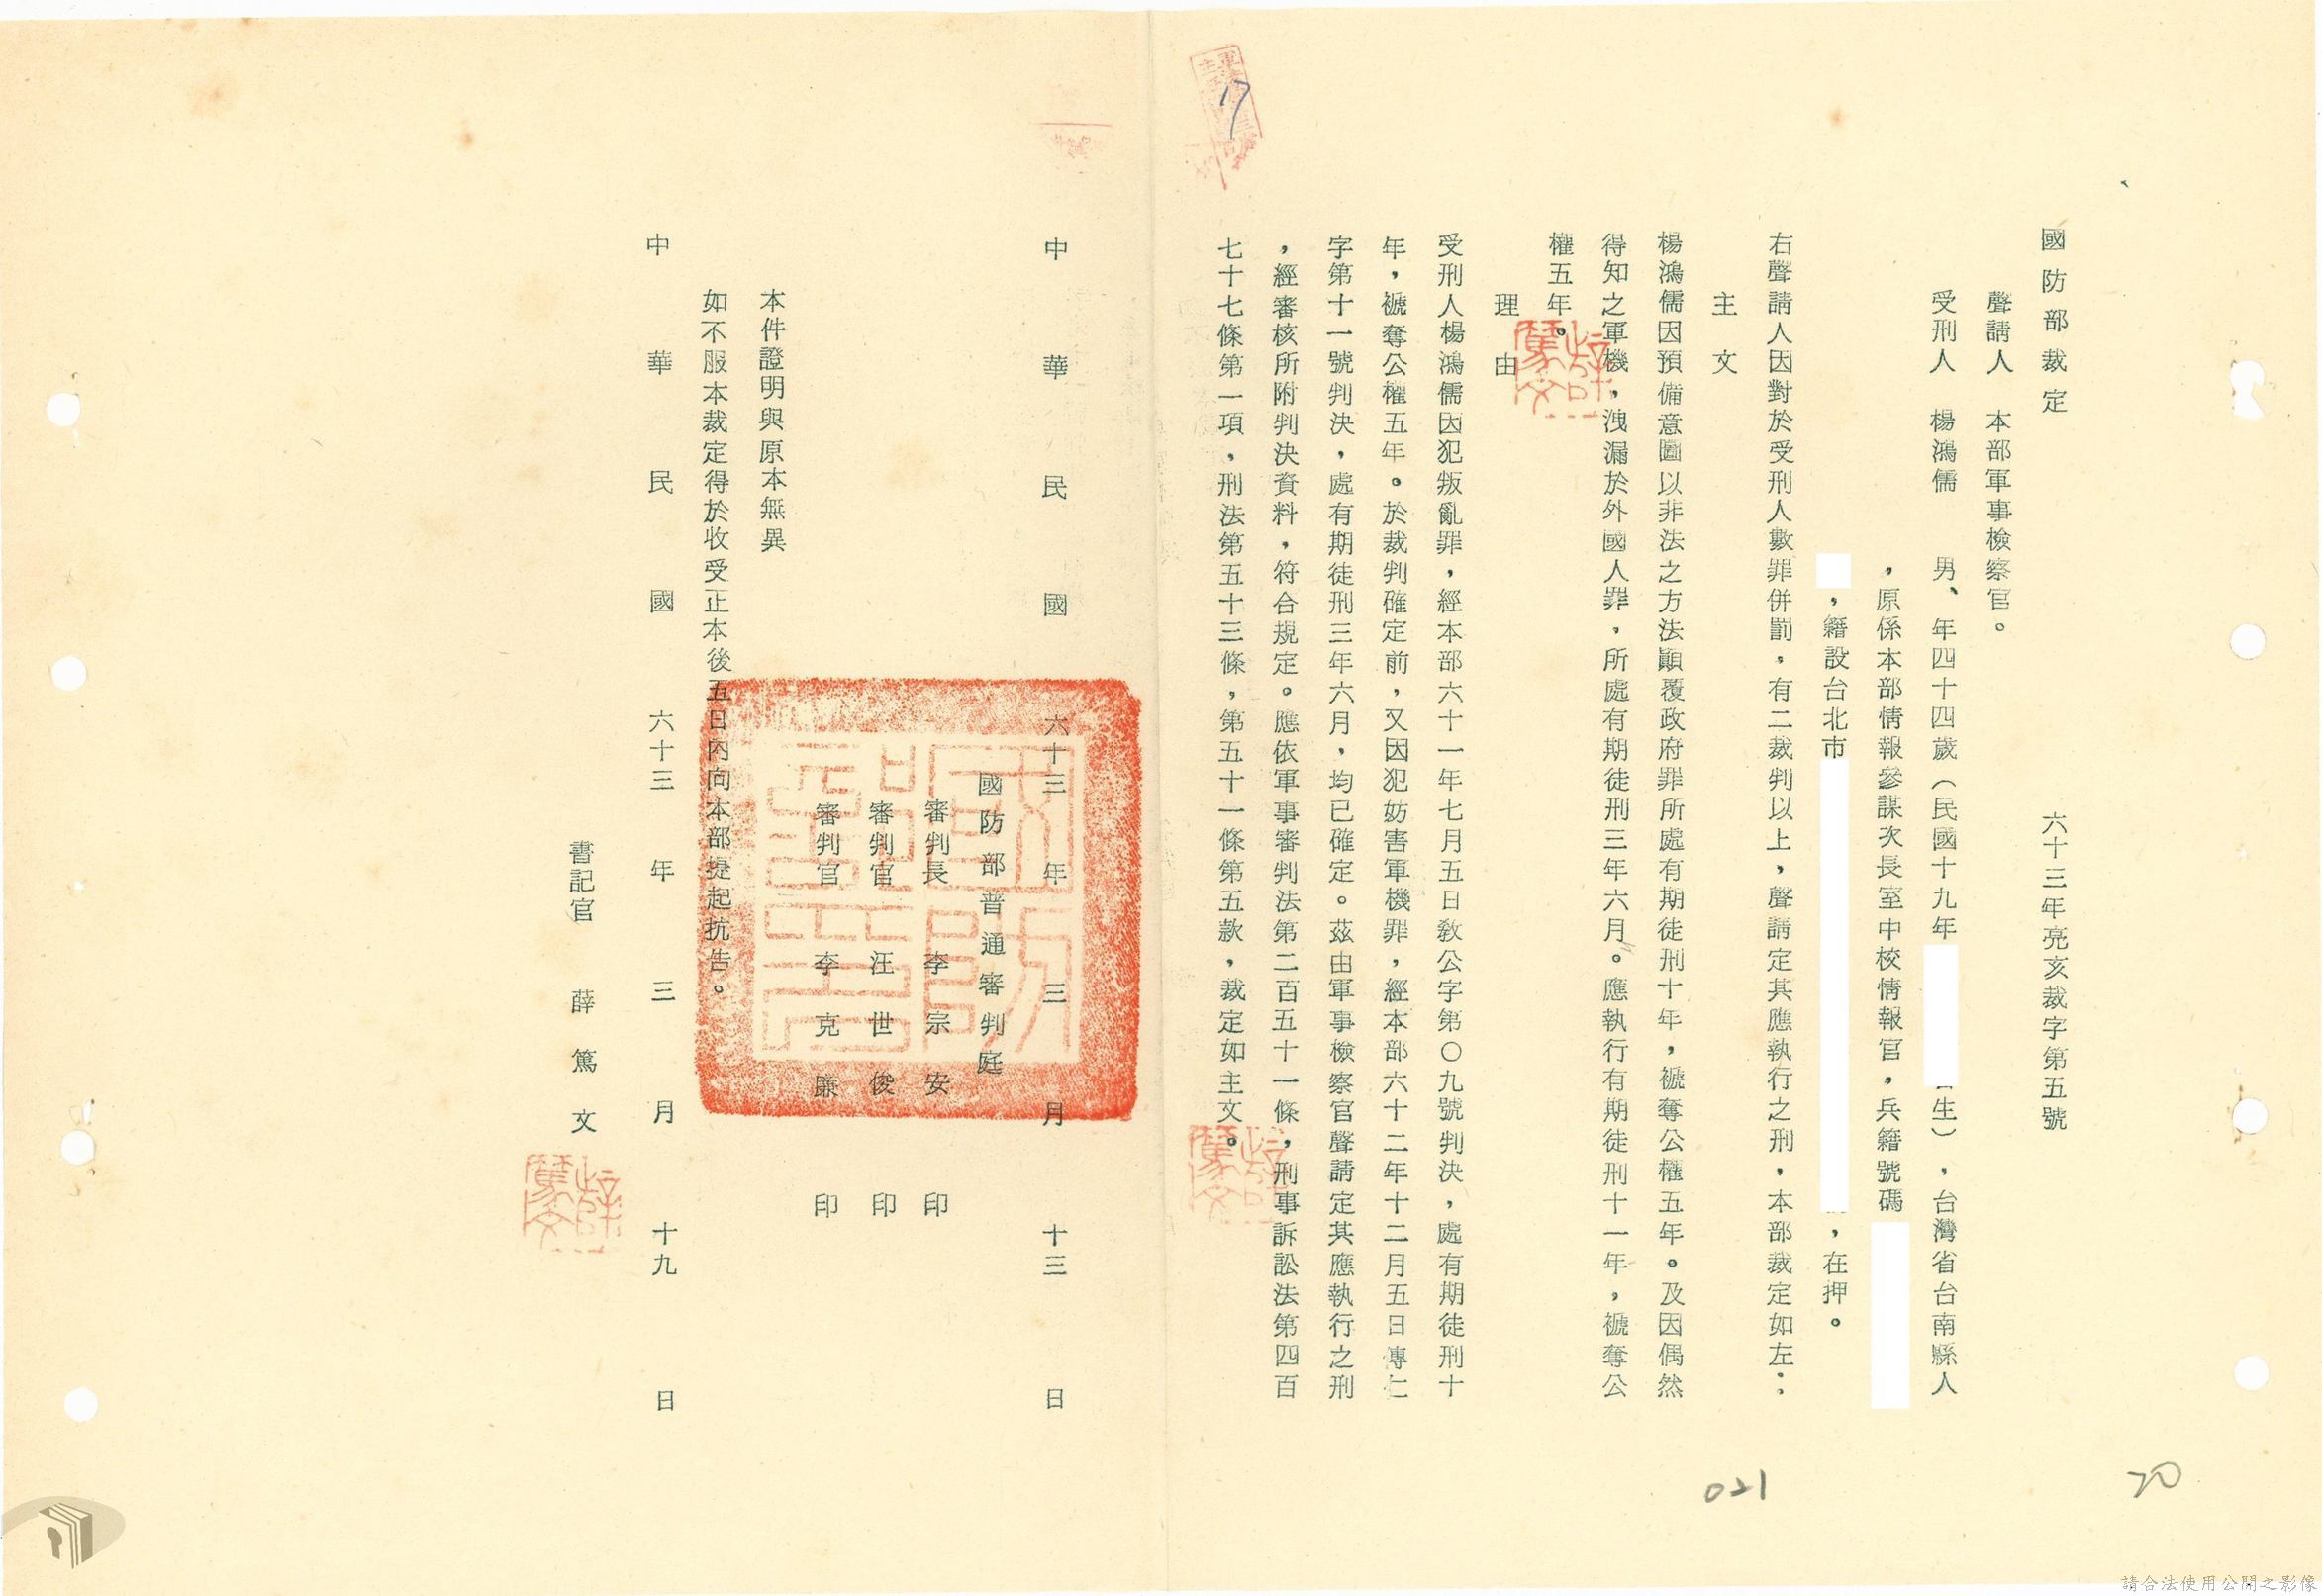 國防部裁定 六十三年亮亥裁字第五號
聲請人 本部軍事檢察官。
受刑人 楊鴻儒 男、年四十四歲（民國十九年 日生），台灣省台南縣人
，原係本部情報參謀次長室中校情報官，兵籍號碼
，籍設台北市 ，在押。
右聲請人因對於受刑人數罪併罰，有二裁判以上，聲請定其應執行之刑，本部裁定如左：
主文
楊鴻儒因預備意圖以非法之方法顚覆政府罪所處有期徒刑十年，褫奪公權五年。及因偶然
得知之軍機，洩漏於外國人罪，所處有期徒刑三年六月。應執行有期徒刑十一年，褫奪公
權五年。
理由
受刑人楊鴻儒因犯叛亂罪，經本部六十一年七月五日教公字第〇九號判決，處有期徒刑十
年，褫奪公權五年。於裁判確定前，又因犯妨害軍機罪，經本部六十二年十二月五日傳仁
字第十一號判決，處有期徒刑三年六月，均已確定。茲由軍事檢察官聲請定其應執行之刑
，經審核所附判決資料，符合規定。應依軍事審判法第二百五十一條，刑事訴訟法第四百
七十七條第一項，刑法第五十三條，第五十一條第五款，裁定如主文。
中華民國六十三年三月十三日
國防部普通審判庭
審判長 李宗安 印
審判官 汪世俊 印
審判官 李克廉 印
本件證明與原本無異
如不服本裁定得於收受正本後五日內向本部提起抗告。
中華民國六十三年三月十九日
書記官 薛篤文
薛篤文
薛篤文
薛篤文
國防部印
17
021
20
請合法使用公開之影像